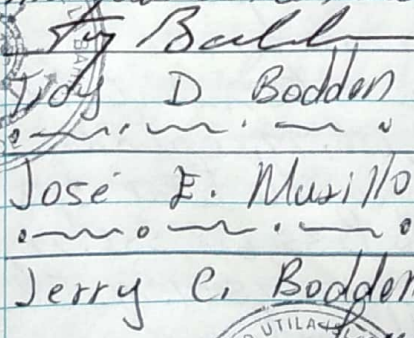 Bodden
D Bodden
José E. Murillo
Jerry C. Bodden
UTILA